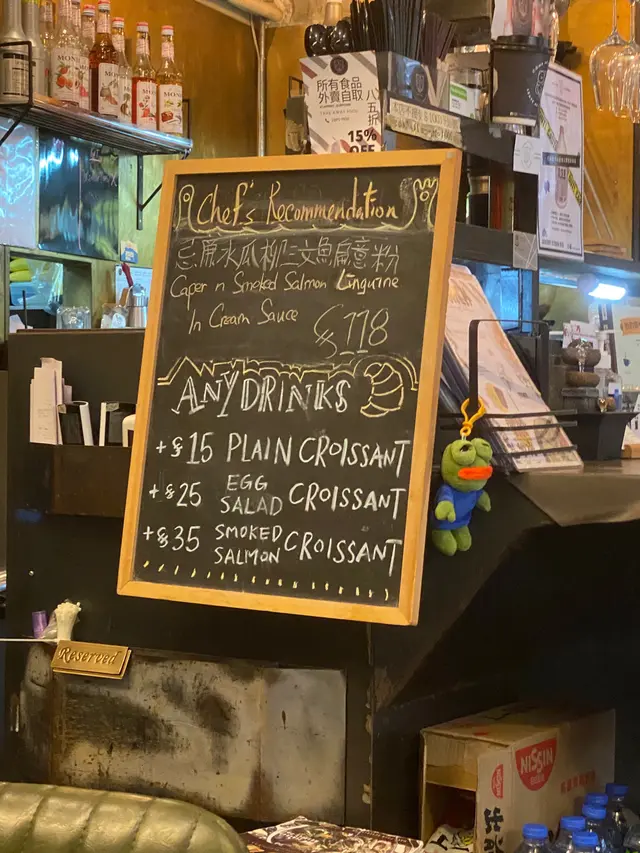 MONIN
所有食品
外賣自取
八五折
15%
OFF
Chef's Recommendation
忌廉水瓜柳三文魚扁意粉
Caper n Smoked Salmon Linguine
In Cream Sauce
$118
ANY DRINKS
+$15 PLAIN CROISSANT
+$25 EGG SALAD CROISSANT
+$35 SMOKED SALMON CROISSANT
Reserved
NISSIN
出前